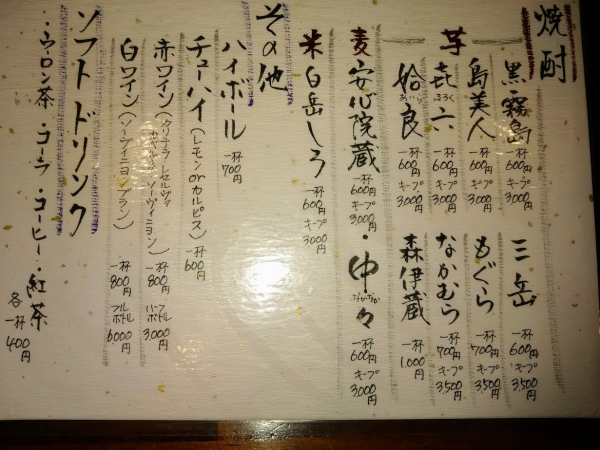 焼酎
芋
黒霧島 一杯600円 キープ3,000円
三岳 一杯600円 キープ3,500円
島美人 一杯600円 キープ3,000円
もぐら 一杯700円 キープ3,500円
㐂六 きろく 一杯600円 キープ3,000円
なかむら 一杯700円 キープ3,500円
姶良 あいら 一杯600円 キープ3,000円
森伊蔵 一杯1,000円
麦
安心院蔵 一杯600円 キープ3,000円
・中々 なかなか 一杯600円 キープ3,000円
米 白岳しろ 一杯600円 キープ3,000円
その他
ハイボール 一杯700円
チューハイ(レモンorカルピス) 一杯600円
赤ワイン(クリテラ レセルヴァ カベルネ・ソーヴィニヨン) 一杯800円 ハーフボトル3,000円
白ワイン(ソーヴィニヨンブラン) 一杯800円 フルボトル6000円
ソフトドリンク
・ウーロン茶・コーラ・コーヒー・紅茶 各一杯400円